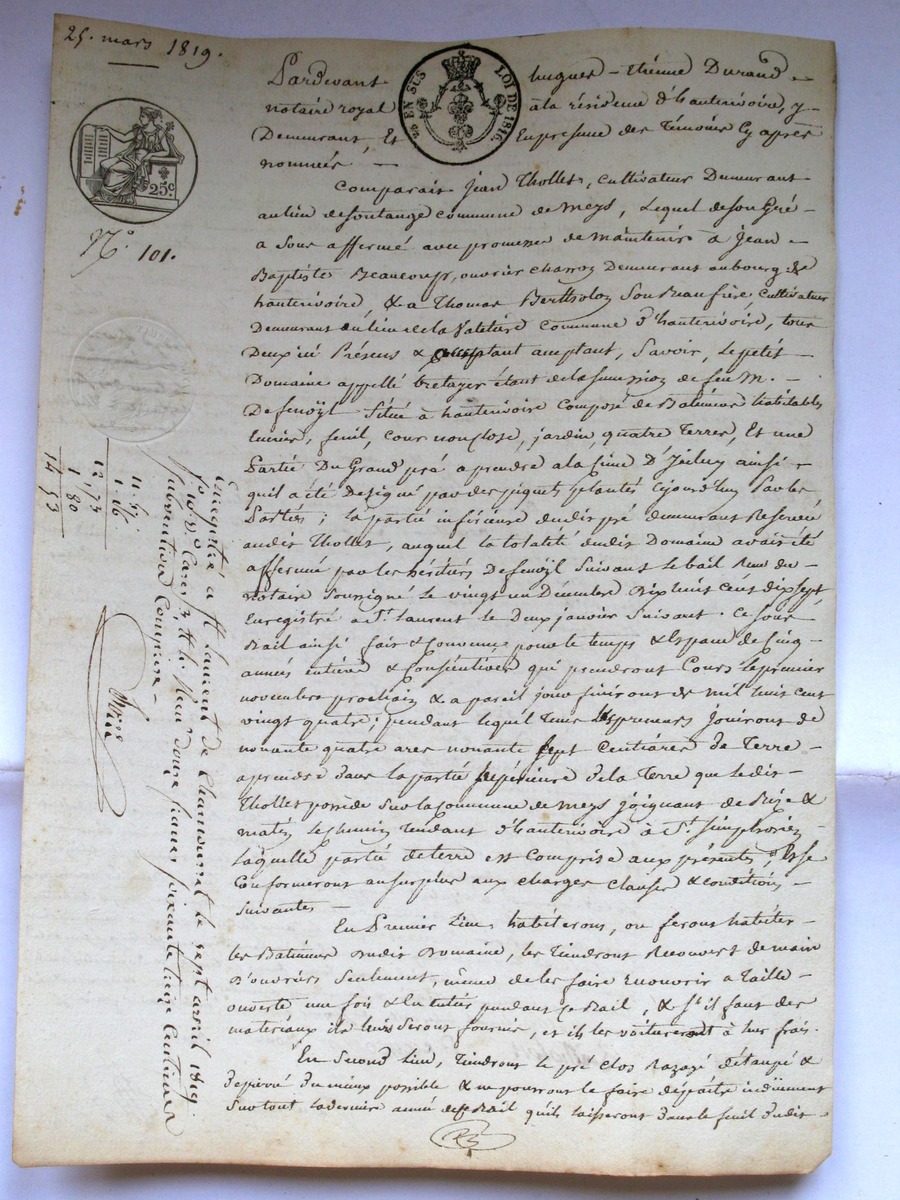 25. mars 1819.
EN SUS LOI DE 1816.
25 c.
N.° 101.
Pardevant hugues - etiénne Durand -
notaire royal à la résidence d'hauterivoire, y
Demeurant, Et En presence des Témoins Cy après
nommés -
Comparait Jean Thollet, Cultivateur Demeurant
au lieu de soulange commune de meys, Lequel de son Gré -
a Sous affermé avec promesse de maintenir à Jean -
Baptiste Beaucoup, ouvrier charron Demeurant au bourg de
hauterivoire, & a Thomas Bertholon Son Beaufrère, Cultivateur
Demeurant au lieu de la Valetière commune d'hauterivoire, tous
Deux ici Présens & acceptant, Savoir, Le petit -
Domaine appellé bretayer étant de la succession de feu M. -
Defenoÿl Situé à hauterivoire Composé de Batimens habitables
écurie, fenil, Cour non close, jardin, quatre Terres, Et une
Partie Du Grand pré a prendre a la Cime ainsi -
quil a été Designé par des piquets plantés Cejourd'huy Par les
Parties ; la partie inférieure dudit pré demeurant Reservée
audit Thollet, auquel la totalité dudit Domaine avait été
affermé par les héritiers Defenoÿl Suivant le bail Reçu du
notaire Soussigné le vingt un Décembre Dix huit cent dix sept
Enregistré a St. Laurent le Deux janvier Suivant. Ce sous
Bail ainsi fait & Convenu pour le temps & Espace de Cinq
années entières & Consécutives qui prendront Cours le premier
novembre prochain & a pareil jour finiront de mil huit cent
vingt quatre ; pendant lequel tems Les preneurs jouiront de
nonante quatre ares nonante Sept Centiares de Terre -
a prendre dans la partie Supérieure de la Terre que ledit -
Thollet possède Sur la Commune de meys joignant de Bize &
matin le chemin tendant d'hauterivoire à St. Simphorien
Laquelle partie de terre est Comprise aux présentes, & Se
Conformeront au surplus aux charges clauses & conditions -
Suivantes -
En Premier Lieu, habiterons, ou ferons habiter -
les Batimens dudit Domaine, les Tiendront Recouverts de main
D'ouvriers Seulement, même de les faire recouvrir a Taille
ouverte une fois pendant ce Bail, & S'il faut des
materiaux ils leurs Seront fournis, et ils les voitureront à leur frais.
En Second Lieu, Tiendront le pré Clos Razagé détaupé &
du mieux possible & ne pourront le faire dépaître indûment
Surtout la dernière année de ce Bail quils laisseront dans le fenil dudit -
Enregistré a St. Laurent de Chamousset le sept avril 1819.
fo. Case Reçu douze francs soixante treize Centimes
Subvention Comprise -
11. 57
1. 16
12, 73
1 80
14 53